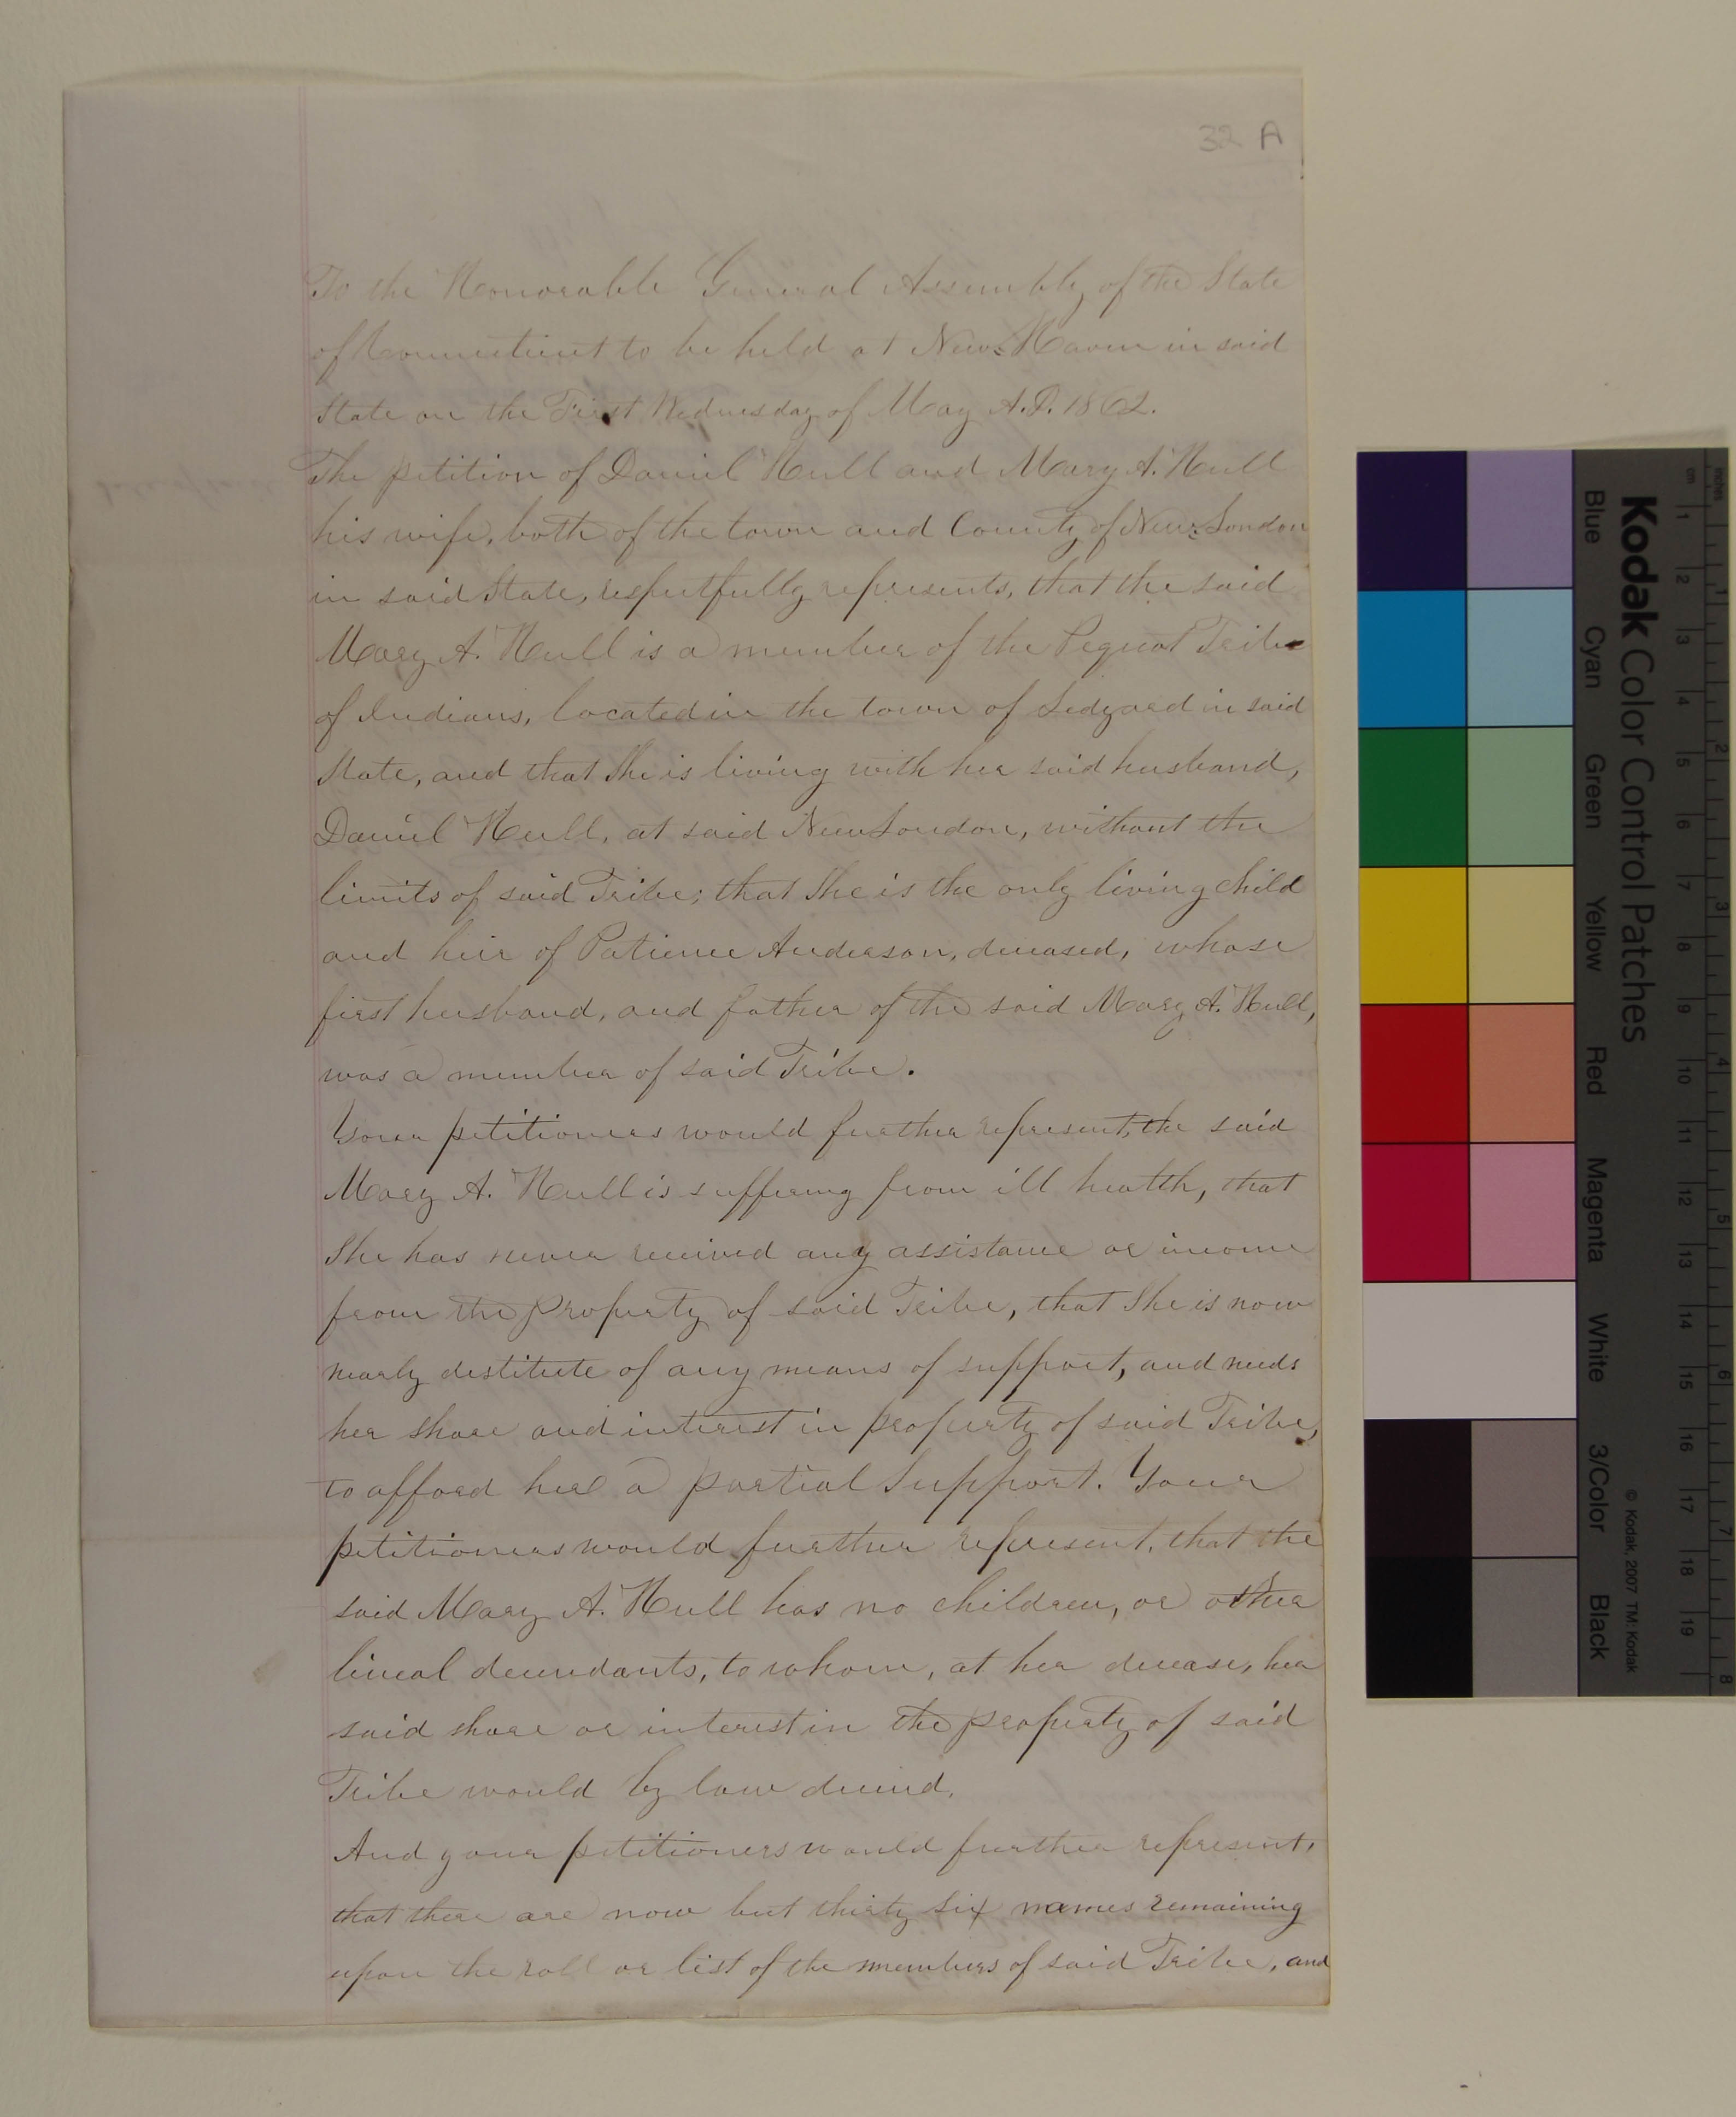 32 A
To the Honorable General Assembly of the State
of Connecticut to be held at New-Haven in said
State on the First Wednesday of May A.D. 1862.
The petition of Daniel Hull and Mary A. Hull
his wife, both of the town and County of New-London
in said State, respectfully represents, that the said
Mary A. Hull is a member of the Pequot Tribe
of Indians, located in the town of Ledyard in said
State, and that She is living with her said husband,
Daniel Hull, at said New London, without the
limits of said Tribe; that She is the only living child
and heir of Patience Anderson, deceased, whose
first husband, and father of the said Mary A. Hull,
was a member of said Tribe.
Your petitioners would further represent, the said
Mary A. Hull is suffering from ill health, that
She has never received any assistance or income
from the property of said Tribe, that She is now
nearly destitute of any means of support, and needs
her share and interest in property of said Tribe,
to afford her a partial Support. Your
petitioners would further represent, that the
said Mary A. Hull has no children, or other
lineal decendants, to whom, at her decease, her
said share or interest in the property of said
Tribe would by law decend.
And your petitioners would further represent,
that there are now but thirty six names remaining
upon the roll or list of the members of said Tribe, and
Kodak Color Control Patches
© Kodak, 2007 TM: Kodak
Blue Cyan Green Yellow Red Magenta White 3/Color Black
inches 1 2 3 4 5 6 7 8
cm 1 2 3 4 5 6 7 8 9 10 11 12 13 14 15 16 17 18 19